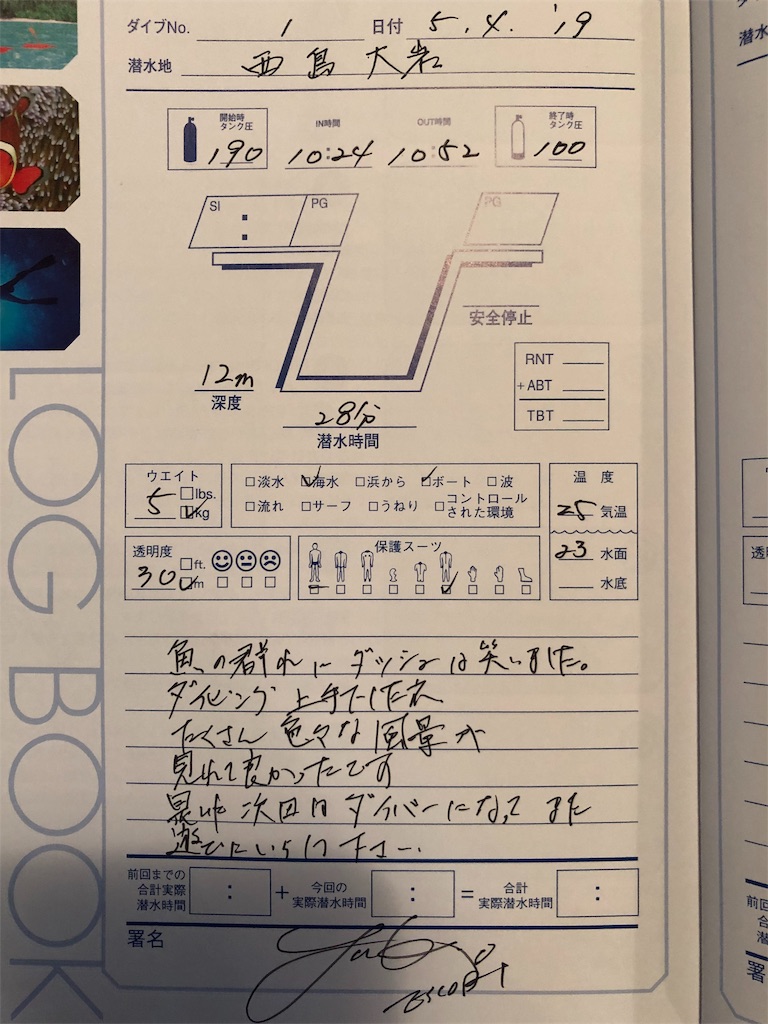 ダイブNo. 1 日付 5. 4. '19
潜水地 西島大岩
開始時タンク圧 190 IN時間 10:24 OUT時間 10:52 終了時タンク圧 100
SI : PG PG
:
安全停止
12m
深度
28分
潜水時間
RNT
+ABT
TBT
ウエイト 5 □lbs. □kg
□淡水 □海水 □浜から □ボート □波
□流れ □サーフ □うねり □コントロールされた環境
温度
25 気温
23 水面
水底
透明度 30 □ft. □m
保護スーツ
魚の群れにダッシュは笑いました。
ダイビング上手でしたね
たくさん色々な風景が
見れて良かったです
是非次回はダイバーになってまた
遊びにいらして下さい。
前回までの合計実際潜水時間 : + 今回の実際潜水時間 : = 合計実際潜水時間 :
署名
LOG BOOK
潜水